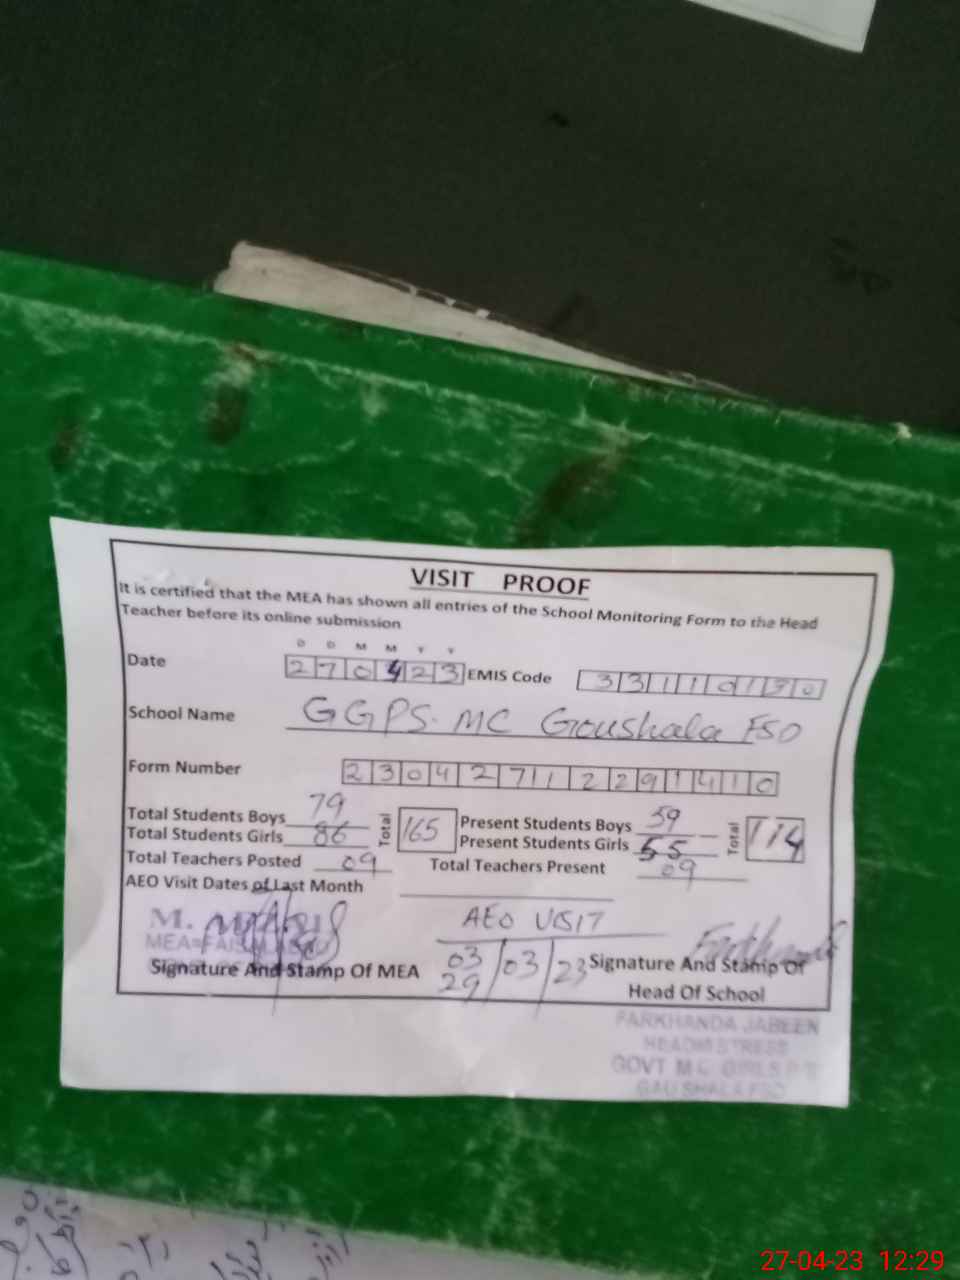 VISIT PROOF
It is certified that the MEA has shown all entries of the School Monitoring Form to the Head
Teacher before its online submission
D D M M Y Y
Date 270423 EMIS Code 33110130
School Name GGPS. MC Goushala FSD
Form Number 230427112291410
Total Students Boys 79 Total 165 Present Students Boys 59 Total 114
Total Students Girls 86 Present Students Girls 55
Total Teachers Posted 09 Total Teachers Present 09
AEO Visit Dates of Last Month
M.
AEO VISIT
Signature And Stamp Of MEA 03 29 /03/23 Signature And Stamp Of
Head Of School
FARKHANDA JABEEN
HEADMISTRESS
GOVT M C GIRLS P/S
GAUSHALA FSD
27-04-23 12:29